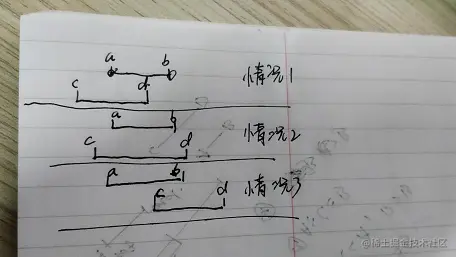 a b 情况1
c d
a b 情况2
c d
a b 情况3
c d
@稀土掘金技术社区